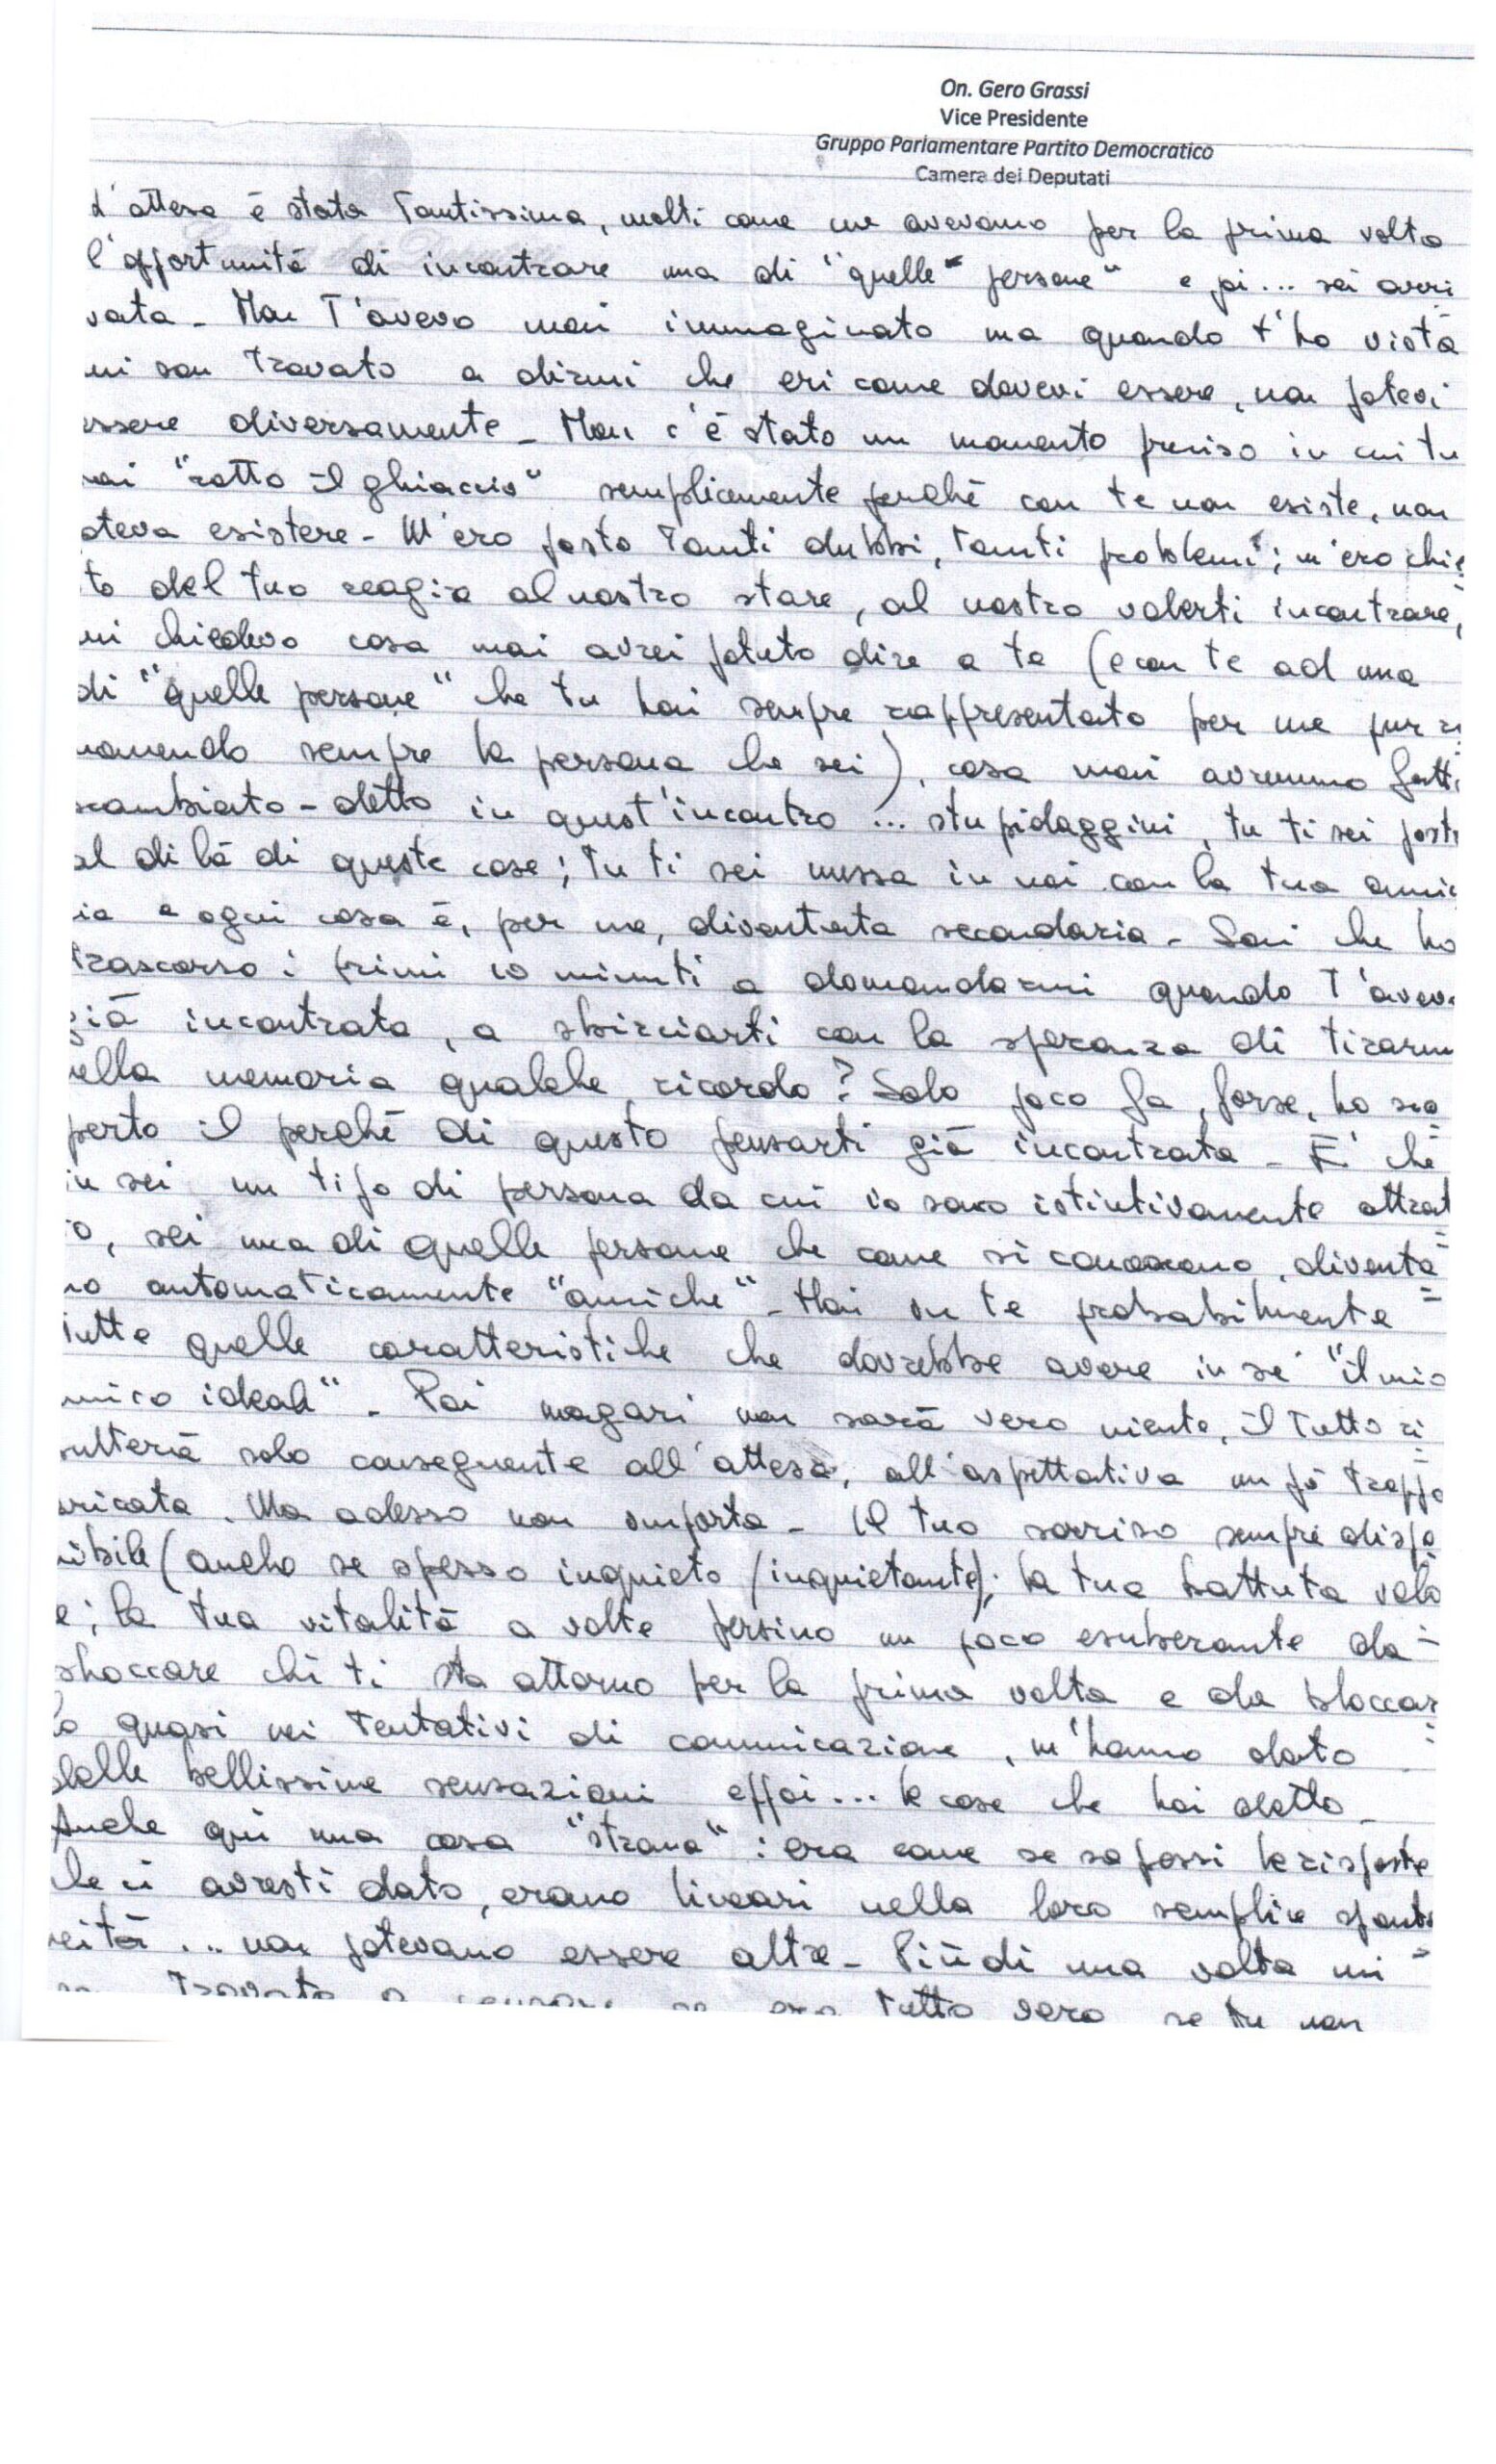 On. Gero Grassi
Vice Presidente
Gruppo Parlamentare Partito Democratico
Camera dei Deputati
L'attesa è stata tantissima, molti come me avevamo per la prima volta
l'opportunità di incontrare una di "quelle" persone" e poi... sei arri
vata - Non t'avevo mai immaginato ma quando t'ho vista
mi son trovato a dirmi che eri come dovevi essere, non potevi
essere diversamente - Non c'è stato un momento preciso in cui tu
hai "rotto il ghiaccio" semplicemente perché con te non esiste, non
oteva esistere - M'ero posto tanti dubbi, tanti problemi; m'ero chie
to del tuo reagire al nostro stare, al nostro volerti incontrare,
mi chiedevo cosa mai avrei potuto dire a te (e con te ad una
di "quelle persone" che tu hai sempre rappresentato per me pur ri
manendo sempre la persona che sei), cosa mai avremmo fatto
scambiato - detto in quest'incontro ... stupidaggini, tu ti sei post
al di là di queste cose; tu ti sei messa in noi con la tua amic
ia e ogni cosa è, per me, diventata secondaria - Sai che ho
trascorso i primi 10 minuti a domandarmi quando t'avev
già incontrata, a sbirciarti con la speranza di tirarm
nella memoria qualche ricordo? Solo poco fa, forse, ho sco
perto il perché di questo pensarti già incontrata - E' che
tu sei un tipo di persona da cui io sono istintivamente attrat
o, sei una di quelle persone che come si conoscono, diventa
no automaticamente "amiche" - Hai in te probabilmente
tutte quelle caratteristiche che dovrebbe avere in sé "il mio
amico ideale". Poi magari non sarà vero niente, il tutto ri
sulterà solo conseguente all'attesa, all'aspettativa un pò troppo
aricata. Ma adesso non importa - Il tuo sorriso sempre dispo
nibile (anche se spesso inquieto/inquietante); la tua battuta velo
e; la tua vitalità a volte persino un poco esuberante da
shoccare chi ti sta attorno per la prima volta e da bloccar
lo quasi nei tentativi di comunicazione, m'hanno dato
delle bellissime sensazioni eppoi... le cose che hai detto -
Anche qui una cosa "strana": era come se sapessi le risposte
che ci avresti dato, erano lineari nella loro semplice sponta
neità... non potevano essere altre - Più di una volta mi
trovato a pensare se era tutto vero se tu non